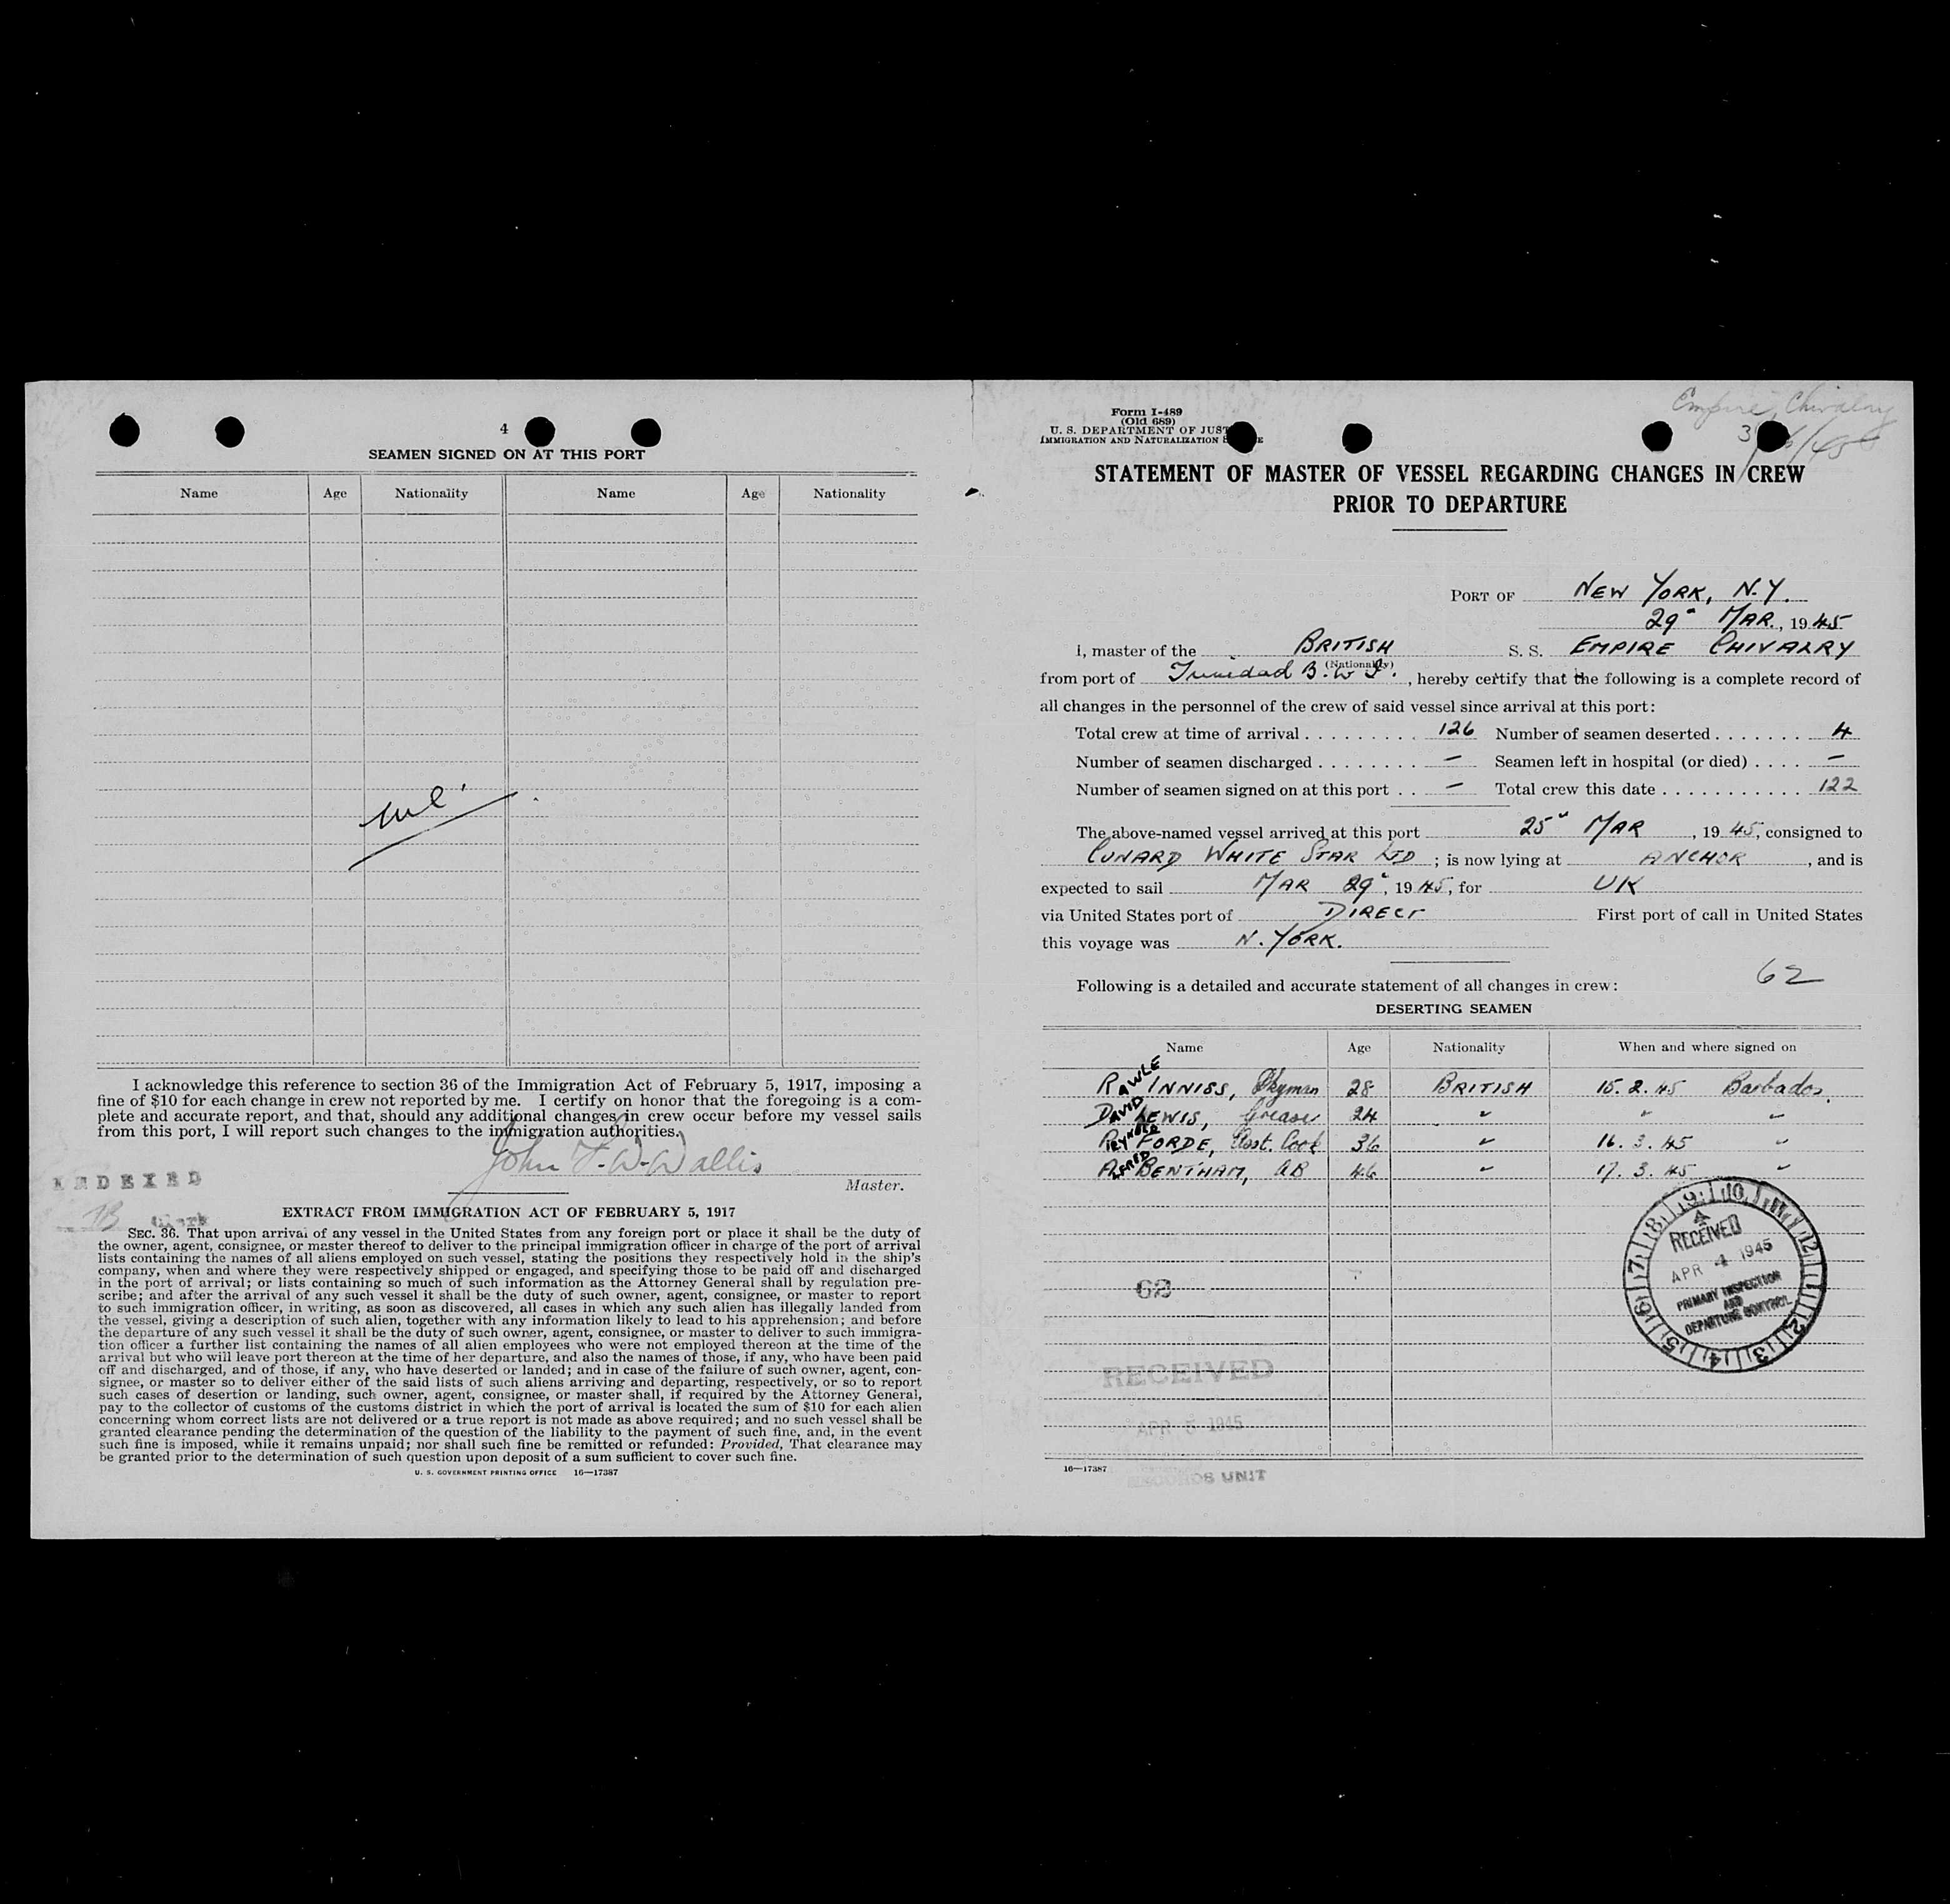 4
SEAMEN SIGNED ON AT THIS PORT
Name Age Nationality Name Age Nationality
I acknowledge this reference to section 36 of the Immigration Act of February 5, 1917, imposing a
fine of $10 for each change in crew not reported by me. I certify on honor that the foregoing is a com-
plete and accurate report, and that, should any additional changes in crew occur before my vessel sails
from this port, I will report such changes to the immigration authorities.
John F. W. Wallis
Master.
INDEXED
Clerk
EXTRACT FROM IMMIGRATION ACT OF FEBRUARY 5, 1917
SEC. 36. That upon arrival of any vessel in the United States from any foreign port or place it shall be the duty of
the owner, agent, consignee, or master thereof to deliver to the principal immigration officer in charge of the port of arrival
lists containing the names of all aliens employed on such vessel, stating the positions they respectively hold in the ship's
company, when and where they were respectively shipped or engaged, and specifying those to be paid off and discharged
in the port of arrival; or lists containing so much of such information as the Attorney General shall by regulation pre-
scribe; and after the arrival of any such vessel it shall be the duty of such owner, agent, consignee, or master to report
to such immigration officer, in writing, as soon as discovered, all cases in which any such alien has illegally landed from
the vessel, giving a description of such alien, together with any information likely to lead to his apprehension; and before
the departure of any such vessel it shall be the duty of such owner, agent, consignee, or master to deliver to such immigra-
tion officer a further list containing the names of all alien employees who were not employed thereon at the time of the
arrival but who will leave port thereon at the time of her departure, and also the names of those, if any, who have been paid
off and discharged, and of those, if any, who have deserted or landed; and in case of the failure of such owner, agent, con-
signee, or master so to deliver either of the said lists of such aliens arriving and departing, respectively, or so to report
such cases of desertion or landing, such owner, agent, consignee, or master shall, if required by the Attorney General,
pay to the collector of customs of the customs district in which the port of arrival is located the sum of $10 for each alien
concerning whom correct lists are not delivered or a true report is not made as above required; and no such vessel shall be
granted clearance pending the determination of the question of the liability to the payment of such fine, and, in the event
such fine is imposed, while it remains unpaid; nor shall such fine be remitted or refunded: Provided, That clearance may
be granted prior to the determination of such question upon deposit of a sum sufficient to cover such fine.
U. S. GOVERNMENT PRINTING OFFICE 16—17387
Form I-489
(Old 689)
U. S. DEPARTMENT OF JUST
IMMIGRATION AND NATURALIZATION
Empire Chivalry
STATEMENT OF MASTER OF VESSEL REGARDING CHANGES IN CREW
PRIOR TO DEPARTURE
PORT OF NEW YORK, N.Y.
29" MAR., 1945
I, master of the BRITISH S. S. EMPIRE CHIVALRY
(Nationality)
from port of Trinidad B.W.I., hereby certify that the following is a complete record of
all changes in the personnel of the crew of said vessel since arrival at this port:
Total crew at time of arrival . . . . . . . . . 126 Number of seamen deserted . . . . . . . 4
Number of seamen discharged . . . . . . . . — Seamen left in hospital (or died) . . . . —
Number of seamen signed on at this port . . — Total crew this date . . . . . . . . . . . 122
The above-named vessel arrived at this port 25" MAR, 1945, consigned to
CUNARD WHITE STAR LTD; is now lying at ANCHOR, and is
expected to sail MAR 29", 1945, for UK
via United States port of DIRECT First port of call in United States
this voyage was N. YORK.
62
Following is a detailed and accurate statement of all changes in crew:
DESERTING SEAMEN
Name Age Nationality When and where signed on
RAWLE INNISS, 28 BRITISH 15.2.45 Barbados.
DAVID LEWIS, Greaser 24 " " "
FORDE, Asst. Cook 36 " 16.3.45 "
ALFRED BENTHAM, AB 46 " 17.3.45 "
9 10 11 12 1 2 3 4 5 6 7 8
RECEIVED
APR 4 1945
PRIMARY INSPECTION
AND
DEPARTURE CONTROL
62
RECEIVED
APR 5 1945
RECORDS UNIT
16—17387